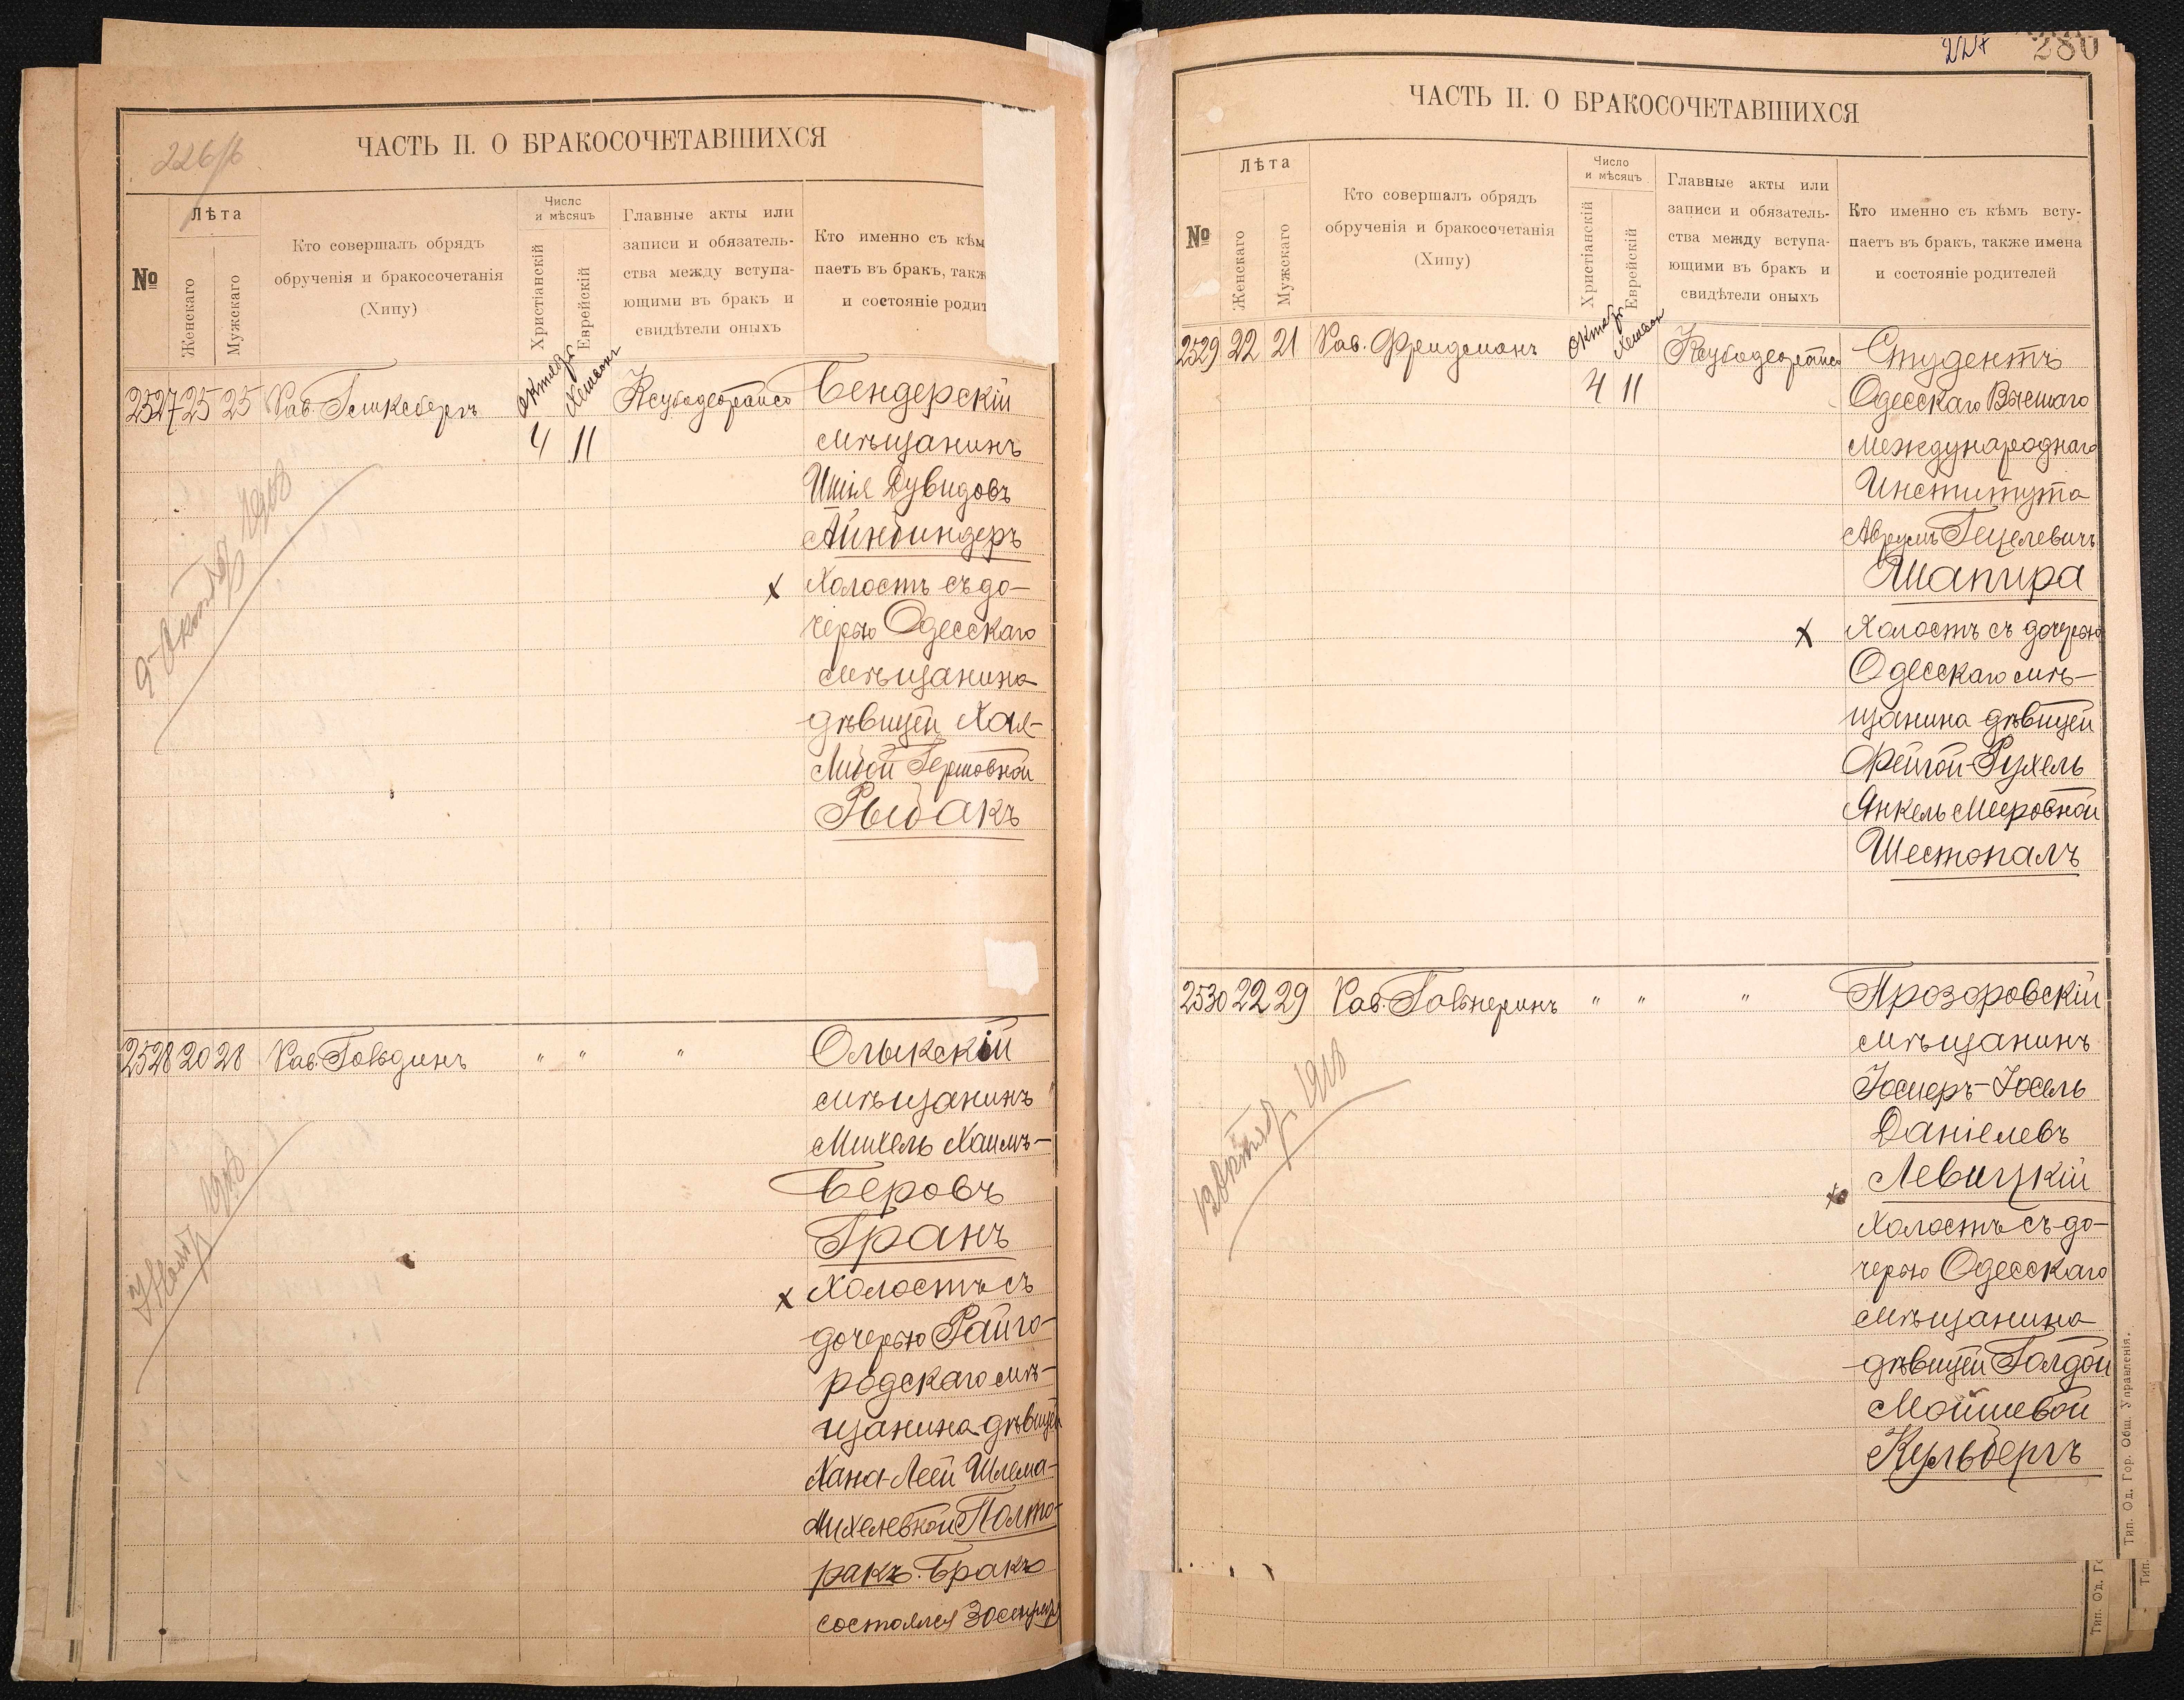 226/б
ЧАСТЬ II. О БРАКОСОЧЕТАВШИХСЯ
№
Лѣта
Женскаго
Мужскаго
Кто совершалъ обрядъ
обрученія и бракосочетанія
(Хипу)
Число
и мѣсяцъ
Христіанскій
Еврейскій
Главные акты или
записи и обязатель-
ства между вступа-
ющими въ бракъ и
свидѣтели оныхъ
Кто именно съ кѣм
паетъ въ бракъ, такж
и состояніе родит
2527 25 25 Рав. Гинксбергъ октяб. Хешвон 4 11 Ксубодеорайсо
Бендерскій
мѣщанинъ
Ишія Дувидовъ
Айнбиндеръ
х Холостъ съ до-
черью Одесскаго
мѣщанина
дѣвицей Хая-
Либой Гершовной
Рыбакъ
9 Октября 1918
2528 20 28 Рав. Гольдинъ " " "
Олыкскій
мѣщанинъ
Михель Хаимъ-
Беровъ
Гранъ
х Холостъ съ
дочерью Райго-
родскаго мѣ-
щанина дѣвицей
Хана-Леей Шлема-
Михелевной Полто-
ракъ. Бракъ
состоялся 30
1918
22
280
ЧАСТЬ II. О БРАКОСОЧЕТАВШИХСЯ
№
Лѣта
Женскаго
Мужскаго
Кто совершалъ обрядъ
обрученія и бракосочетанія
(Хипу)
Число
и мѣсяцъ
Христіанскій
Еврейскій
Главные акты или
записи и обязатель-
ства между вступа-
ющими въ бракъ и
свидѣтели оныхъ
Кто именно съ кѣмъ всту-
паетъ въ бракъ, также имена
и состояніе родителей
2529 22 21 Рав. Фридманъ октяб. Хешвон 4 11 Ксубодеорайсо
Студентъ
Одесскаго Высшаго
Международнаго
Института
Аврумъ Гецелевичъ
Шапира
х Холостъ съ дочерью
Одесскаго мѣ-
щанина дѣвицей
Фейгой-Рухель
Янкель Мееровной
Шестопалъ
2530 22 29 Рав. Гальперинъ " " "
Прозоровскій
мѣщанинъ
Іосиеръ-Іосель
Даніелевъ
Левицкій
х Холостъ съ до-
черью Одесскаго
мѣщанина
дѣвицей Голдой
Мошиевой
Кульбергъ
1918
Тип. Од. Гор. Общ. Управленія.
Тип. Од. Го
Тип.